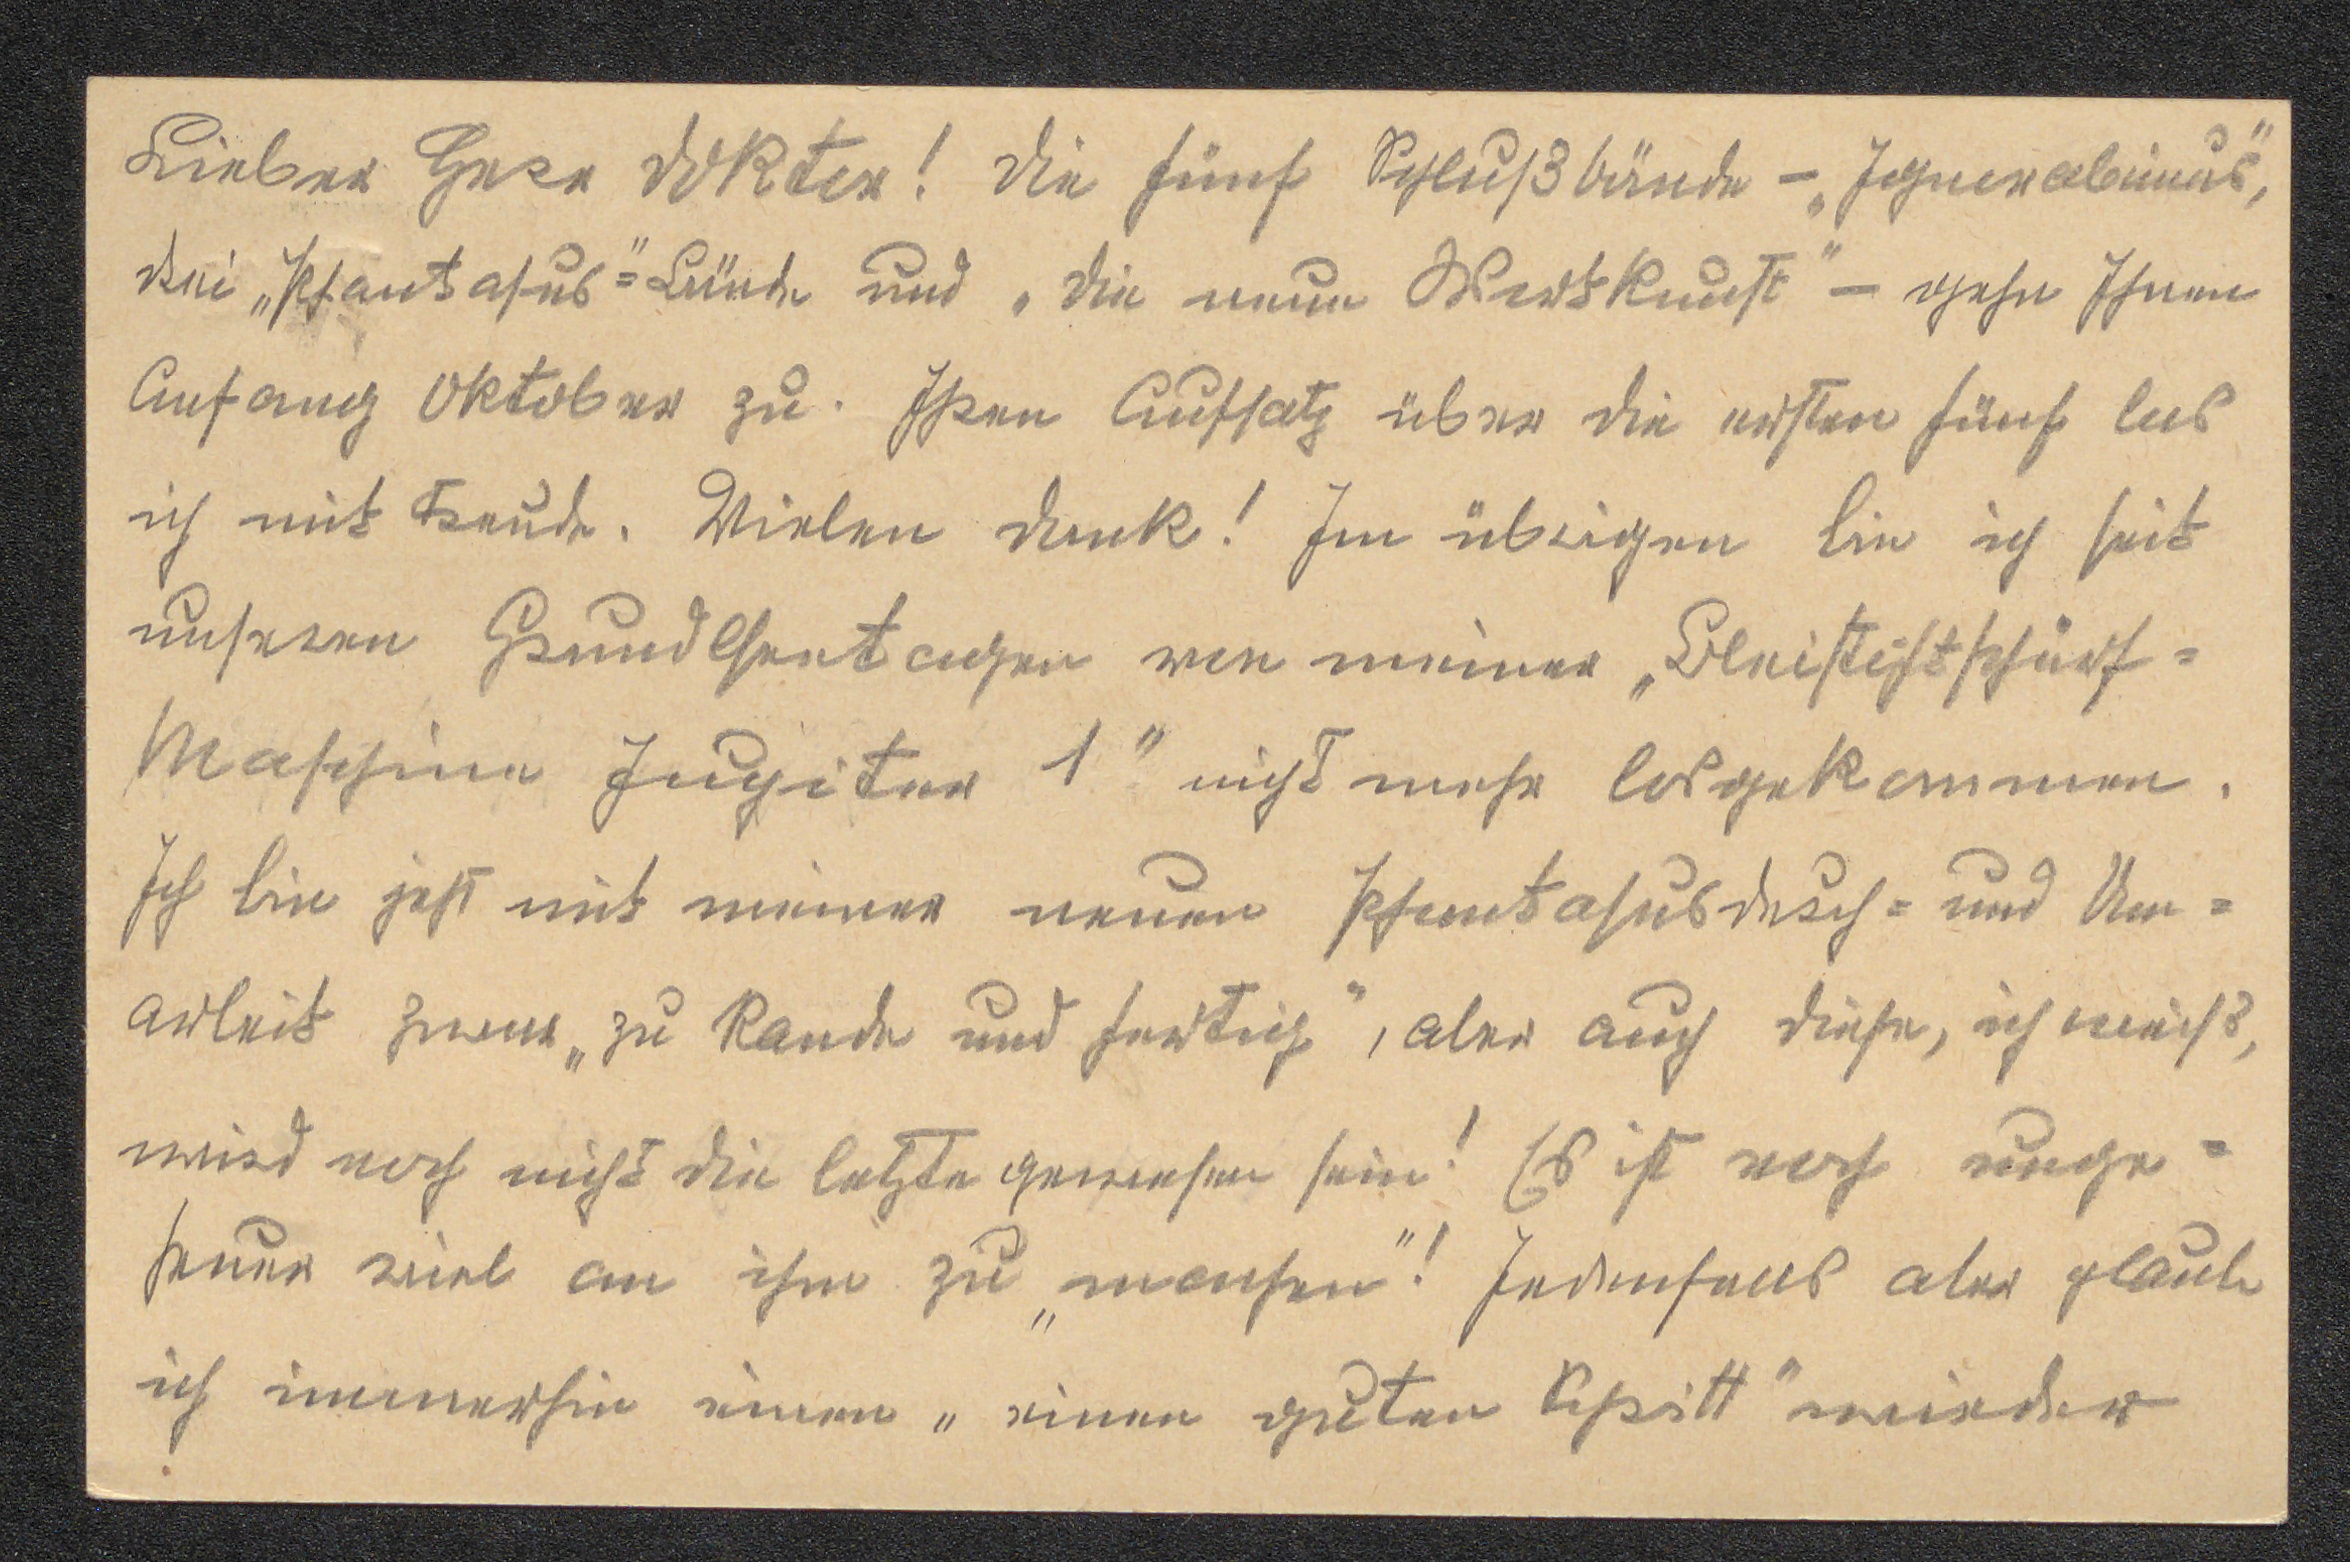 Lieber Herr Doktor! Die fünf Schlußbände – „Ignorabimus“,
drei „Phantasus“=Bände und „Die neue Wortkunst“ – gehn Ihnen
Anfang Oktober zu. Ihren Aufsatz über die ersten fünf las
ich mit Freude. Vielen Dank! Im übrigen bin ich seit
unseren Grundlseetagen von meiner „Bleistiftschärf=
Maschine Jupiter 1“ nicht mehr losgekommen.
Ich bin jetzt mit meiner neuen Phantasusdurch= und Um=
arbeit zwar „zu Rande und fertig“, aber auch diese, ich weiß,
wird noch nicht die letzte gewesen sein! Es ist noch unge=
heuer viel an ihm zu „machen“! Jedenfalls aber glaube
ich immerhin einen „einen guten Schritt“ wieder